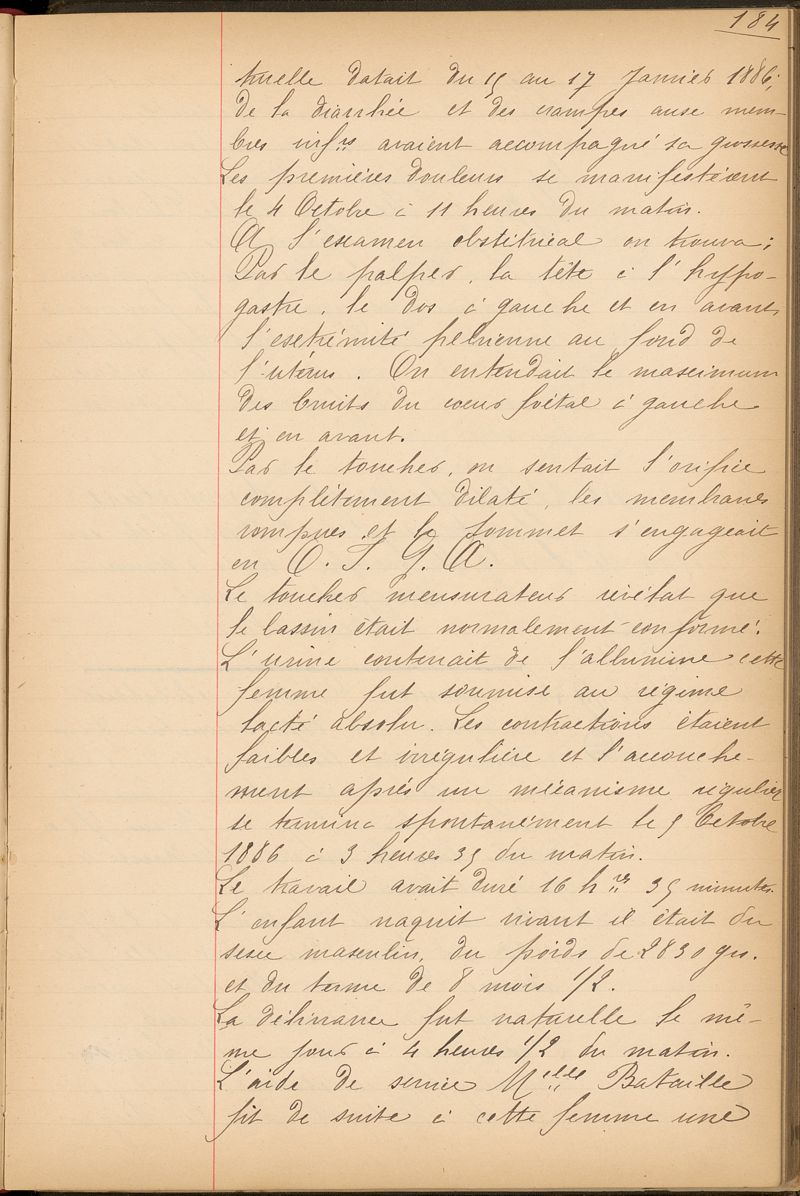 184
tuelle datait du 15 au 17 Janvier 1886;
de la diarrhée et des crampes aux mem-
bres infrs avaient accompagné sa grossesse
Les premières douleurs se manifestèrent
le 4 Octobre à 11 heures du matin.
A l'examen obstétrical on trouva:
Par le palper, la tête à l'hypo-
gastre, le dos à gauche et en avant
l'extrémité pelvienne au fond de
l'utérus. On entendait le maximum
des bruits du cœur fœtal à gauche
et en avant.
Par le toucher, on sentait l'orifice
complètement dilaté, les membranes
rompues et le sommet s'engageait
en O. I. G. A.
Le toucher mensurateur révélat que
le bassin était normalement conformé.
L'urine contenait de l'albumine cette
femme fut soumise au régime
lacté absolu. Les contractions étaient
faibles et irrégulière et l'accouche-
ment après un mécanisme régulier
se termina spontanément le 5 Octobre
1886 à 3 heures 35 du matin.
Le travail avait duré 16 hres 35 minutes.
L'enfant naquit vivant il était du
sexe masculin, du poids de 2830 grs.
et du terme de 8 mois 1/2.
La délivrance fut naturelle le mê-
me jour à 4 heures 1/2 du matin.
L'aide de service Melle Bataille
fit de suite à cette femme une